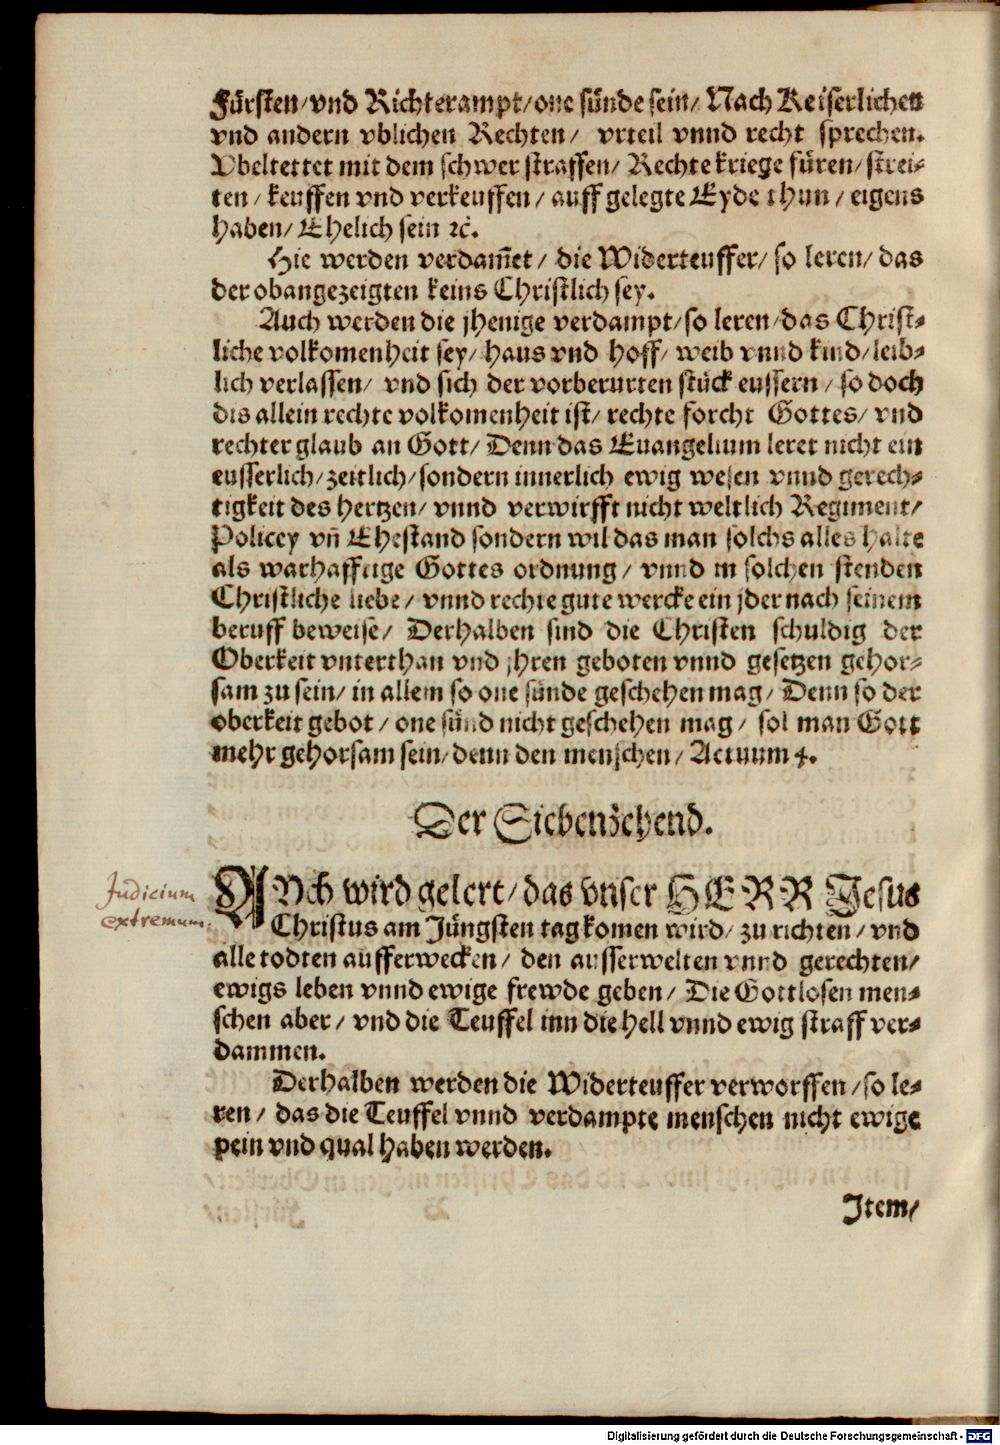 Fürsten/ vnd Richterampt/ one sünde sein/ Nach Keiserlichen
vnd andern vblichen Rechten/ vrteil vnnd recht sprechen.
Vbeltettet mit dem schwer straffen/ Rechte kriege füren/ strei-
ten/ keuffen vnd verkeuffen/ auff gelegte Eyde thun/ eigens
haben/ Ehelich sein ⁊c̄.
Hie werden verdam̄et/ die Widerteuffer/ so leren/ das
der obangezeigten keins Christlich sey.
Auch werden die jhenige verdampt/ so leren/ das Christ-
liche volkomenheit sey/ haus vnd hoff/ weib vnnd kind/ leib-
lich verlassen/ vnd sich der vorberurten stück eussern/ so doch
dis allein rechte volkomenheit ist/ rechte forcht Gottes/ vnd
rechter glaub an Gott/ Denn das Euangelium leret nicht ein
eusserlich/ zeitlich/ sondern innerlich ewig wesen vnnd gerech-
tigkeit des hertzen/ vnnd verwirfft nicht weltlich Regiment/
Policey vn̄ Ehestand sondern wil das man solchs alles halte
als warhafftige Gottes ordnung/ vnnd in solchen stenden
Christliche liebe/ vnnd rechte gute wercke ein jder nach seinem
beruff beweise/ Derhalben sind die Christen schuldig der
Oberkeit vnterthan vnd jhren geboten vnnd gesetzen gehor-
sam zu sein/ in allem so one sünde geschehen mag/ Denn so der
oberkeit gebot/ one sünd nicht geschehen mag/ sol man Gott
mehr gehorsam sein/ denn den menschen/ Actuum 4.
Der Siebenzehend.
Judicium
extremum.
AVch wird gelert/ das vnser HERR Jesus
Christus am Jüngsten tag komen wird/ zu richten/ vnd
alle todten aufferwecken/ den ausserwelten vnnd gerechten/
ewigs leben vnnd ewige frewde geben/ Die Gottlosen men-
schen aber/ vnd die Teuffel inn die hell vnnd ewig straff ver-
dammen.
Derhalben werden die Widerteuffer verworffen/ so le-
ren/ das die Teuffel vnnd verdampte menschen nicht ewige
pein vnd qual haben werden.
Item/
Digitalisierung gefördert durch die Deutsche Forschungsgemeinschaft - DFG